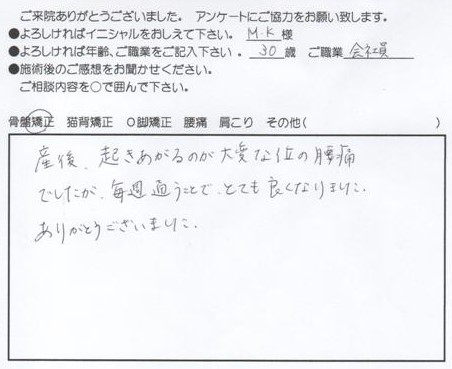 ご来院ありがとうございました。 アンケートにご協力をお願い致します。
●よろしければイニシャルをおしえて下さい。 M.K 様
●よろしければ年齢、ご職業をご記入下さい。 30 歳 ご職業 会社員
●施術後のご感想をお聞かせください。
ご相談内容を○で囲んで下さい。
骨盤矯正 猫背矯正 O脚矯正 腰痛 肩こり その他( )
産後、起きあがるのが大変な位の腰痛
でしたが、毎週通うことで、とても良くなりました。
ありがとうございました。